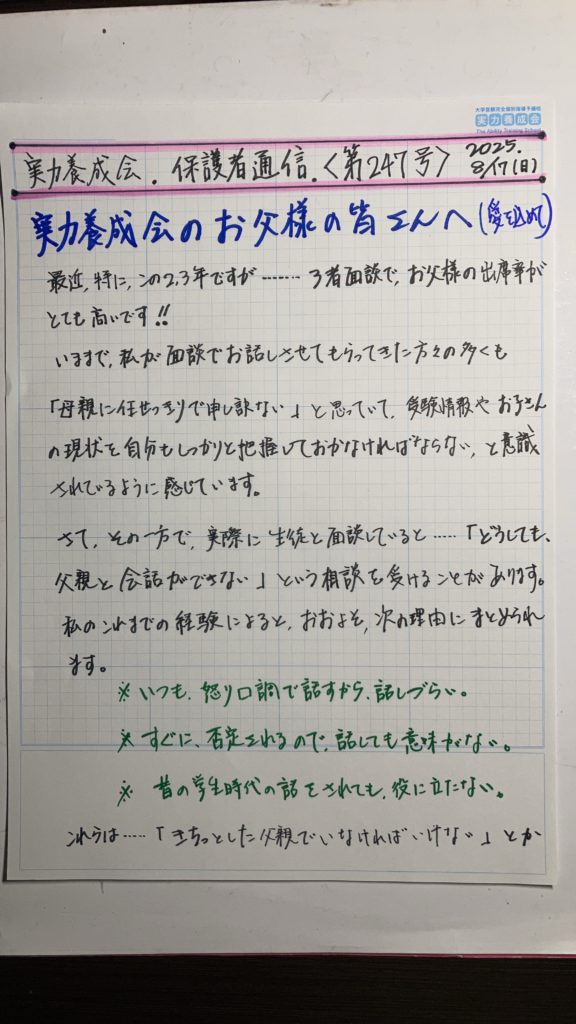 大学受験完全個別指導予備校
実力養成会
The Ability Training School
実力養成会.保護者通信.〈第247号〉2025.
8/17(日)
実力養成会のお父様の皆さんへ(愛を込めて)
最近,特に,この2,3年ですが……… 3者面談で,お父様の出席率が
とても高いです!!
いままで,私が面談でお話しさせてもらってきた方々の多くも
「母親に任せっきりで申し訳ない」と思っていて,受験情報やお子さん
の現状を自分もしっかりと把握しておかなければならない,と意識
されているように感じています。
さて,その一方で,実際に生徒と面談していると……「どうしても、
父親と会話ができない」という相談を受けることがあります。
私のこれまでの経験によると,おおよそ,次の理由にまとめられ
ます。
※いつも,怒り口調で話すから,話しづらい。
※すぐに,否定されるので,話しても意味がない。
※昔の学生時代の話をされても,役に立たない。
これらは……「きちっとした父親でいなければいけない」とか